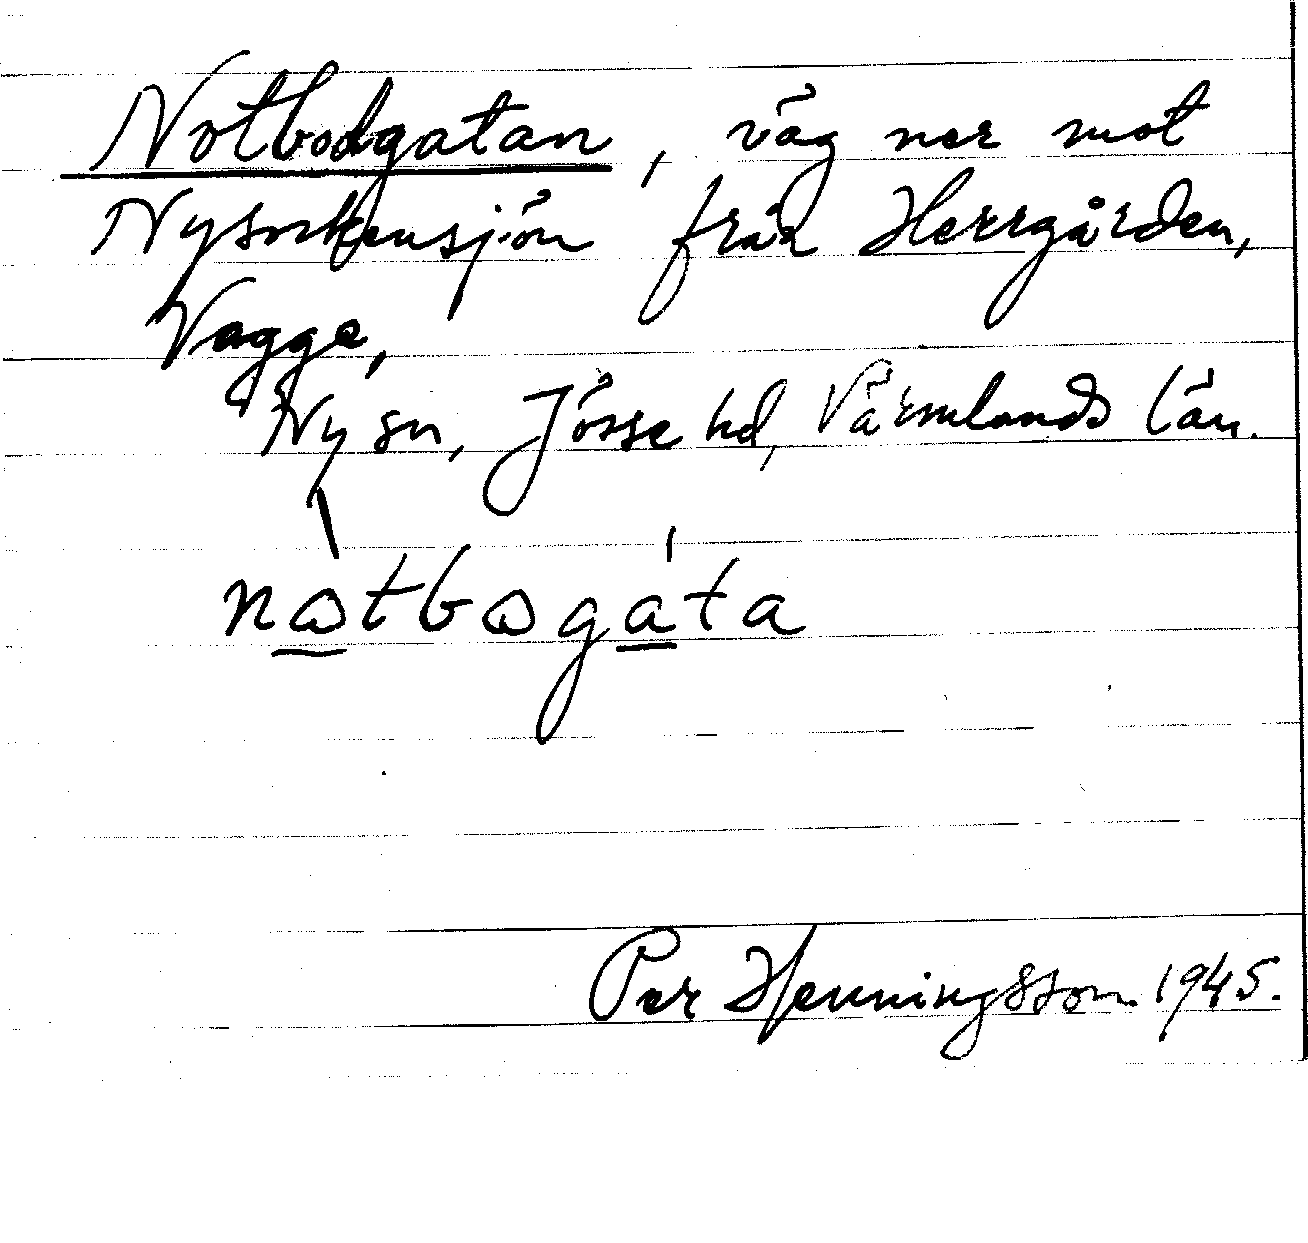 Notbodgatan, väg ner mot
Nysockensjön från Herrgården,
Vagge,
Ny sn, Jösse hd, Värmlands län.
nɷtbɷgata
Per Henningsson 1945.